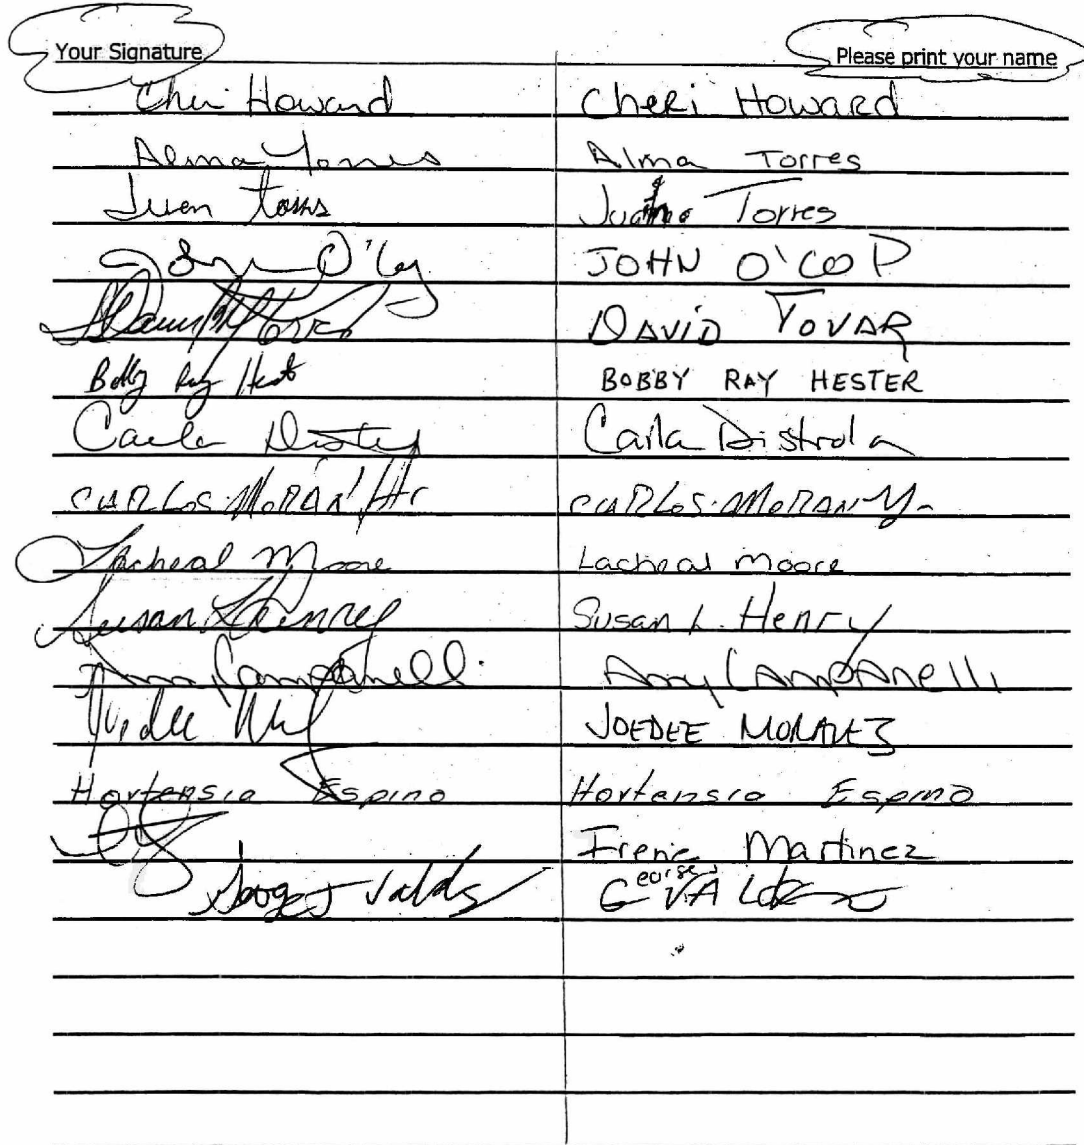 Your Signature Please print your name
Cheri Howard Cheri Howard
Alma Torres Alma Torres
Juan Torres Torres
John O' JOHN O'COP
David DAVID TOVAR
Bobby Ray Hester BOBBY RAY HESTER
Carla Carla Distrola
CARLOS MORAN Jr CARLOS MORAN Jr
Lacheal Moore Lacheal Moore
Susan L Henry Susan L. Henry
Amy Campanelli Amy CAMPANElli
JoeDee JOEDEE MORALEZ
Hortensia Espino Hortensia Espino
Irene Martinez
George J Valdez George VALdez